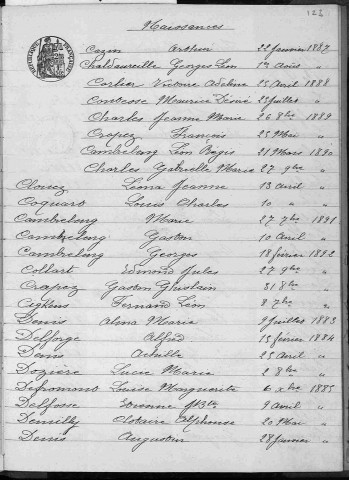 123
Naissances
Cazin Arthur 22 janvier 1887
Chaldaureille Georges Léon 1er Août "
Carlier Victorie Adeline 15 Avril 1888
Comtesse Maurice Désiré 25 Juillet "
Charles Jeanne Marie 26 8bre 1889
Crapez François 25 Mai "
Cambreleng Léon Régis 21 Mars 1890
Charles Gabrielle Marie 27 9bre "
Clouez Léona Jeanne 13 avril "
Coquart Louis Charles 10 " "
Cambreleng Marie 27 7bre 1891
Cambreleng Gaston 10 Avril "
Cambreleng Georges 18 février 1892
Collart Edmond Jules 27 9bre "
Crapez Gaston Ghislain 31 8bre "
Fernand Léon 8 7bre "
Denis Alina Maria 9 Juillet 1883
Delforge Alfred 15 février 1884
Denis Achille 25 Avril "
Dozière Lucie Marie 2 8bre "
Defromont Louise Marguerite 6 Xbre 1885
Delfosse Etienne Jh Bte 9 Avril "
Demilly Clotaire Alphonse 20 Mai "
Denis Augustin 28 Janvier "